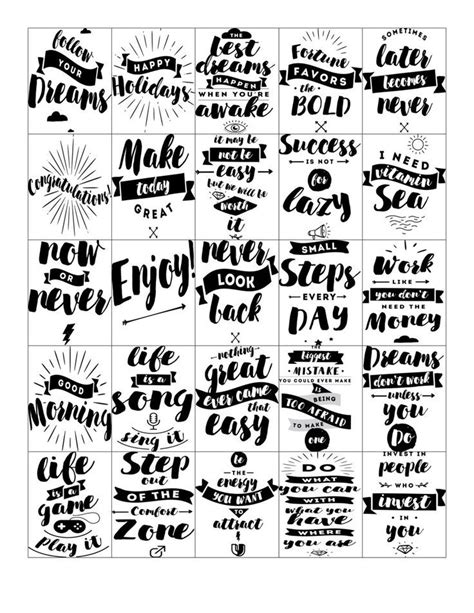 follow
YOUR
Dreams
HAPPY
Holidays
the
best
dreams
HAPPEN
WHEN YOU'RE
awake
Fortune
FAVORS
the
BOLD
SOMETIMES
later
becomes
never
Congratulations!
Make
today
GREAT
it may be
not be
easy
but we will be
worth
it
Success
IS NOT
for
lazy
I NEED
vitamin
Sea
now
OR
never
Enjoy!
never
LOOK
back
SMALL
Steps
EVERY
DAY
Work
LIKE
you don't
NEED THE
Money
GOOD
Morning
life
is a
song
sing it
nothing
great
ever came
that
easy
THE
biggest
MISTAKE
YOU COULD EVER MAKE
IS
BEING
TOO AFRAID
TO MAKE
one
Dreams
don't work
unless
you
Do
life
IS A
game
play it
Step
out
OF THE
Comfort
Zone
be
THE
energy
YOU WANT
to
attract
DO
WHAT
you can
WITH
what you
have
WHERE
you are
INVEST IN
people
WHO
invest
IN
you